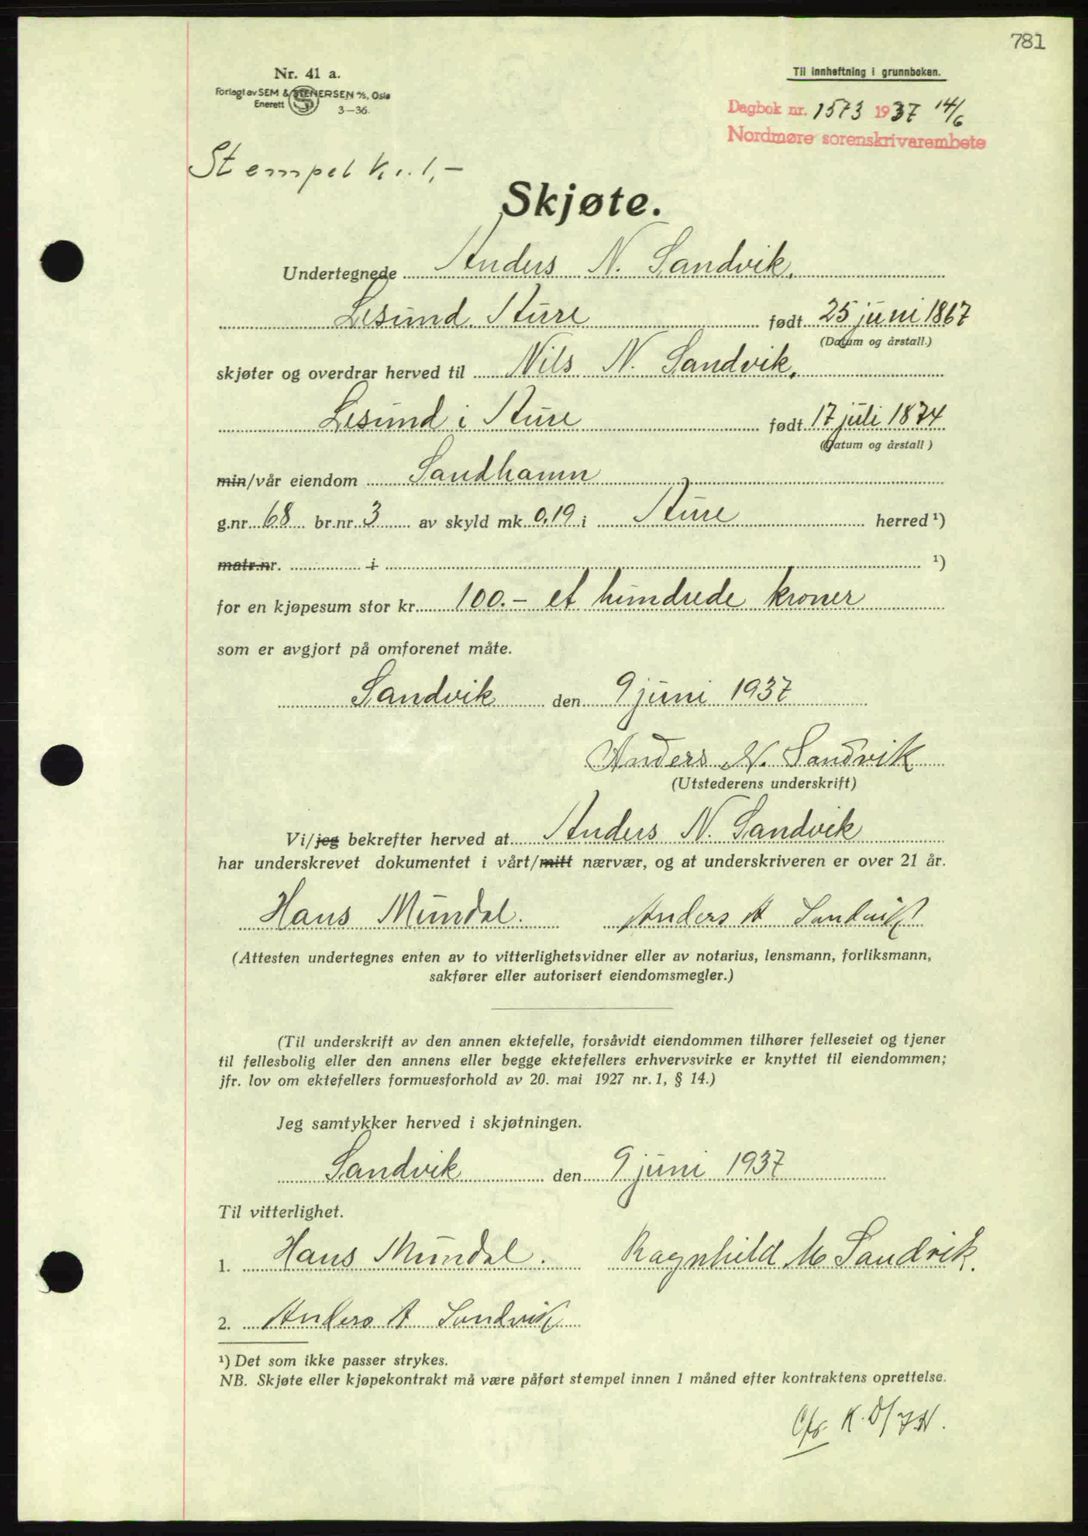 781
Nr. 41 a.
Forlagt av SEM & STENERSEN A/S, Oslo
Enerett 3—36.
Til innheftning i grunnboken.
Dagbok nr. 1573 1937 14/6
Nordmøre sorenskrivarembete
Stempel kr. 1,-
Skjøte.
Undertegnede Anders N. Sandvik,
Lesund. Aure født 25 juni 1867
(Datum og årstall.)
skjøter og overdrar herved til Nils N. Sandvik,
Lesund i Aure født 17 juli 1874
(Datum og årstall)
min/vår eiendom Sandhamn
g.nr. 68 br.nr. 3 av skyld mk. 0,19 i Aure herred ¹)
matr.nr. i ¹)
for en kjøpesum stor kr. 100.- et hundrede kroner
som er avgjort på omforenet måte.
Sandvik den 9 juni 1937
Anders N. Sandvik
(Utstederens underskrift)
Vi/jeg bekrefter herved at Anders N. Sandvik
har underskrevet dokumentet i vårt/mitt nærvær, og at underskriveren er over 21 år.
Hans Mundal. Anders A Sandvik
(Attesten undertegnes enten av to vitterlighetsvidner eller av notarius, lensmann, forliksmann,
sakfører eller autorisert eiendomsmegler.)
(Til underskrift av den annen ektefelle, forsåvidt eiendommen tilhører felleseiet og tjener
til fellesbolig eller den annens eller begge ektefellers erhvervsvirke er knyttet til eiendommen;
jfr. lov om ektefellers formuesforhold av 20. mai 1927 nr. 1, § 14.)
Jeg samtykker herved i skjøtningen.
Sandvik den 9 juni 1937
Til vitterlighet.
1. Hans Mundal. Ragnhild M Sandvik.
2. Anders A Sandvik
¹) Det som ikke passer strykes.
NB. Skjøte eller kjøpekontrakt må være påført stempel innen 1 måned efter kontraktens oprettelse.